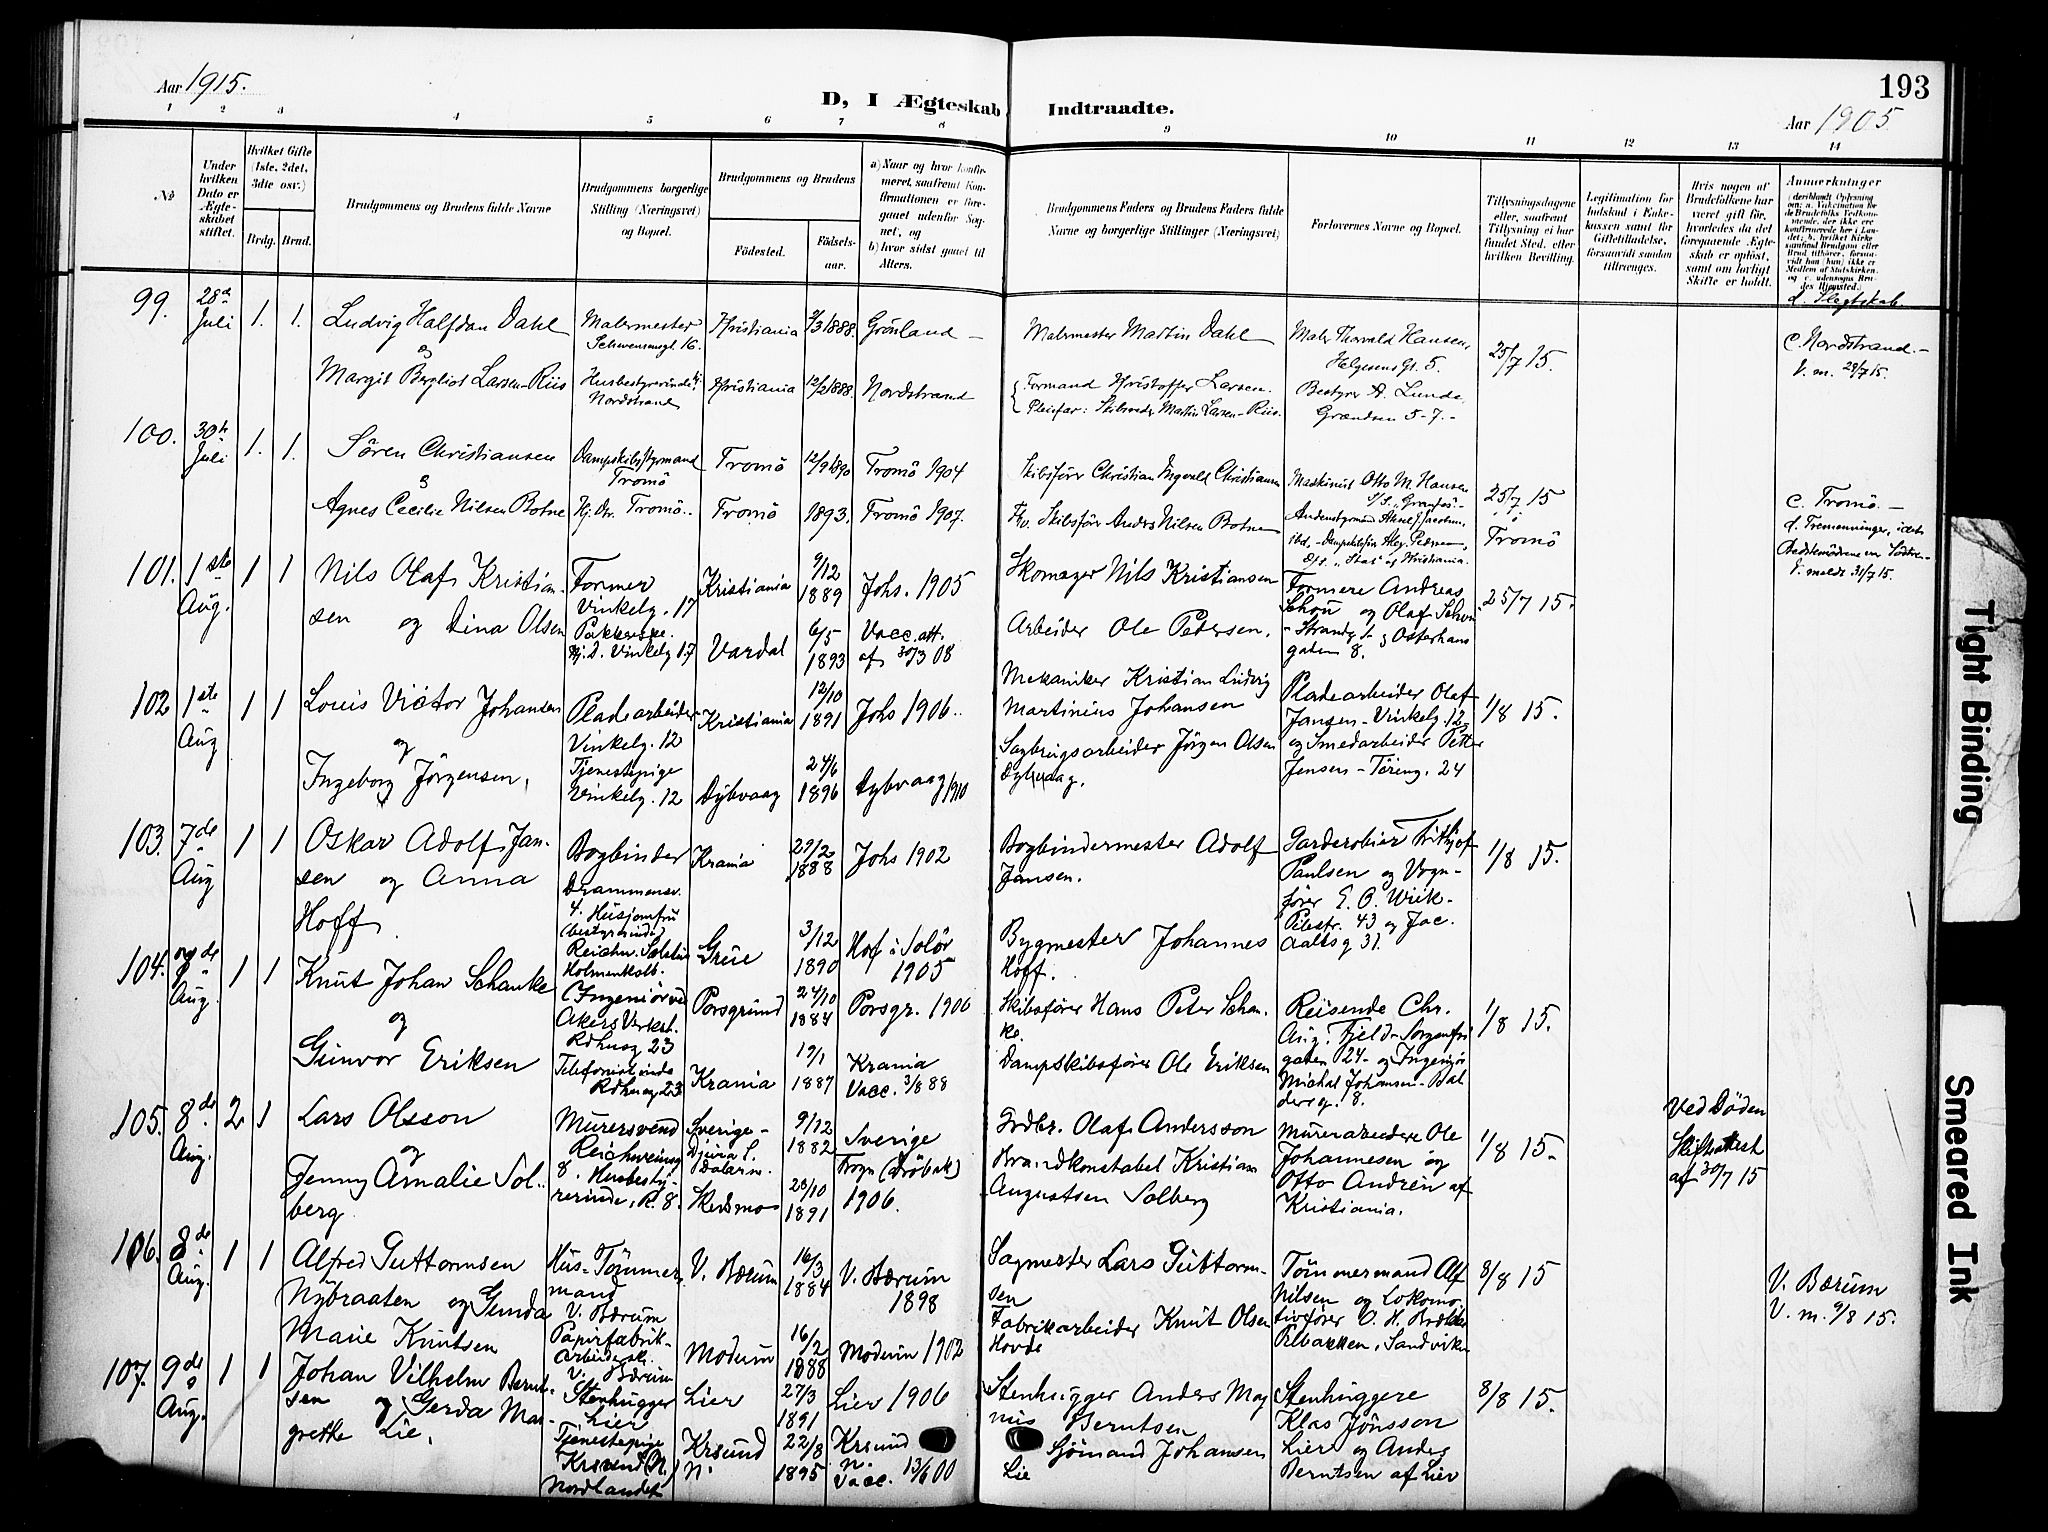 Aar 1915.
D, I Ægteskab Indtraadte.
193
Aar 1905
1 2 3 4 5 6 7 8 9 10 11 12 13 14
No
Under hvilken Dato er Ægteskabet stiftet.
Hvilket Gifte (1ste, 2det, 3dte osv.)
Brdg. Brud.
Brudgommens og Brudens fulde Navne
Brudgommens borgerlige Stilling (Næringsvei) og Bopæl.
Brudgommens og Brudens
Fødested. Fødselsaar.
a) Naar og hvor konfirmeret, saafremt Konfirmationen er foregaaet udenfor Sognet, og
b) hvor sidst gaaet til Alters.
Brudgommens Faders og Brudens Faders fulde Navne og borgerlige Stillinger (Næringsvei)
Forlovernes Navne og Bopæl.
Tillysningsdagene eller, saafremt Tillysning ei har fundet Sted, efter hvilken Bevilling.
Legitimation for Indskud i Enkekassen samt for Giftetilladelse, forsaavidt saadan tiltrænges.
Hvis nogen af Brudefolkene har været gift før, hvorledes da det foregaaende Ægteskab er opløst, samt om lovligt Skifte er holdt.
Anmerkninger
d. Slegtskab
99. 28d Juli 1. 1. Ludvig Halfdan Dahl
Malermester Schwensensgt. 16. Kristiania 3/3 1888. Grönland
Malermester Martin Dahl
Maler Thorvald Hansen, Helgesens Gt. 5.
25/7 15.
C. Nordstrand.
V. m. 29/7 15.
&
Margit Bergliot Larsen-Riis
Husbestyrerinde Nordstrand Kristiania 12/2 1888. Nordstrand
Formand Kristoffer Larsen.
Pleiefar: Martin Larsen-Riis.
Bestyrer A. Lunde Grændsen 5-7.-
100. 30te Juli 1. 1. Sören Christiansen
Dampskibsstyrmand Tromö Tromö 12/9 1890 Tromö 1904
Skibsförer Christian Ingvald Christiansen
Maskinist Otto M. Hansen
25/7 15
i Tromö
C. Tromö.
&
Agnes Cecilie Nilsen Botne
Hj. Dr. Tromö. Tromö 1893. Tromö 1907.
Fhv. Skibsförer Anders Nilsen Botne
d. Tremenninger, idet
Bedstemödrene er Södre
V. meldt 31/7 15.
101. 1ste Aug. 1 1 Nils Olaf Kristiansen og Dina Olsen
Former Vinkelg. 17 Kristiania 9/12 1889 Johs. 1905
Skomager Nils Kristiansen
Formere Andreas Schou og Olaf Schou
- Strandg. 5 & Osterhausgaten 8.
25/7 15.
Pakkerske. Hj. D. Vinkelg 17 Vardal 6/5 1893 Vacc. att. af 30/3 08
Arbeider Ole Pedersen.
102 1ste Aug 1 1 Louis Victor Johansen
Pladearbeider Vinkelg. 12 Kristiania 12/10 1891 Johs 1906.
Mekaniker Kristian Ludvig Martinius Johansen
Pladearbeider Olaf Jansen - Vinkelg. 12 og Smedarbeider Petter Jensen - Töieng. 24
1/8 15.
og
Ingeborg Jörgensen,
Tjenestepige Vinkelg. 12 Dybvaag 24/6 1896 Dybvaag 1910
Sagbrugsarbeider Jörgen Olsen Dybvaag.
103. 7de Aug 1 1 Oskar Adolf Jansen og Anna Hoff
Bogbinder Drammensv. 4. Krania 29/2 1888 Johs 1902
Bogbindermester Adolf Jansen.
Garderobier Frithjof Paulsen og Vognförer E. O. Wiik - Pilestr. 43 og Jac. Aallsg 31.
1/8 15.
Husjomfru (bestyrerinde) Holmenkolb. Grue 3/12 1890 Hof i Solör 1905
Bygmester Johannes Hoff.
104. 7de Aug. 1 1 Knut Johan Schanke
(Ingeniör ved Akers Verkst. Rdhusg 23 Porsgrund 24/10 1887 Porsgr. 1906
Skibsförer Hans Peter Schanke.
Reisende Chr. Aug. Fjeld - Sorgenfrigaten 24 - og Ingeniör Michal Johansen - Baldersg. 8.
1/8 15.
og
Gunvor Eriksen
Telefonistinde Rdhusg 23 Krania 19/1 1887 Krania Vacc. 3/8 88
Dampskibsförer Ole Eriksen
105. 8de Aug. 2 1 Lars Olsson
Murersvend 8. Sverige - Djura S. Dalarn. 9/12 1882 Sverige
Grdbr. Olaf Andersson
Murerarbeidere Ole Johannesen og Otto Andrén af Kristiania.
1/8 15.
Ved Döden
Skifteattest
af 30/7 15
og
Jenny Amalie Solberg
Husbestyrerinde, R. 8. Skedsmo 28/10 1891 Frogn (Dröbak) 1906.
Brandkonstabel Kristian Augustsen Solberg
106. 8de Aug. 1 1 Alfred Guttormsen Nybraaten og Gunda Marie Knutsen
Hus-Tömmermand V. Bærum V. Bærum 16/3 1884 V. Bærum 1898
Sagmester Lars Guttormsen
Tömmermand Alf Nilsen og Lokomotivförer O. H. Bakken, Sandviken
8/8 15
V. Bærum
V. m. 9/8 15.
Papirfabrik-Arbeiderske. V. Bærum Modum 16/2 1888 Modum 1902
Fabrikarbeider Knut Olsen Hovde
107. 9de Aug. 1 1 Johan Vilhelm Berntsen og Gerda Margrethe Lie,
Stenhugger Lier Lier 27/3 1891 Lier 1906
Stenhugger Anders Magnus Berntsen
Stenhuggere Klas Jönsson Lier og Anders Berntsen af Lier
8/8 15.
Tjenestepige Krsund N. Nordlandet Krsund N. 22/8 1895 Krsund n. Vacc. 13/6 00
Sjömand Johansen Lie
Tight Binding
Smeared Ink